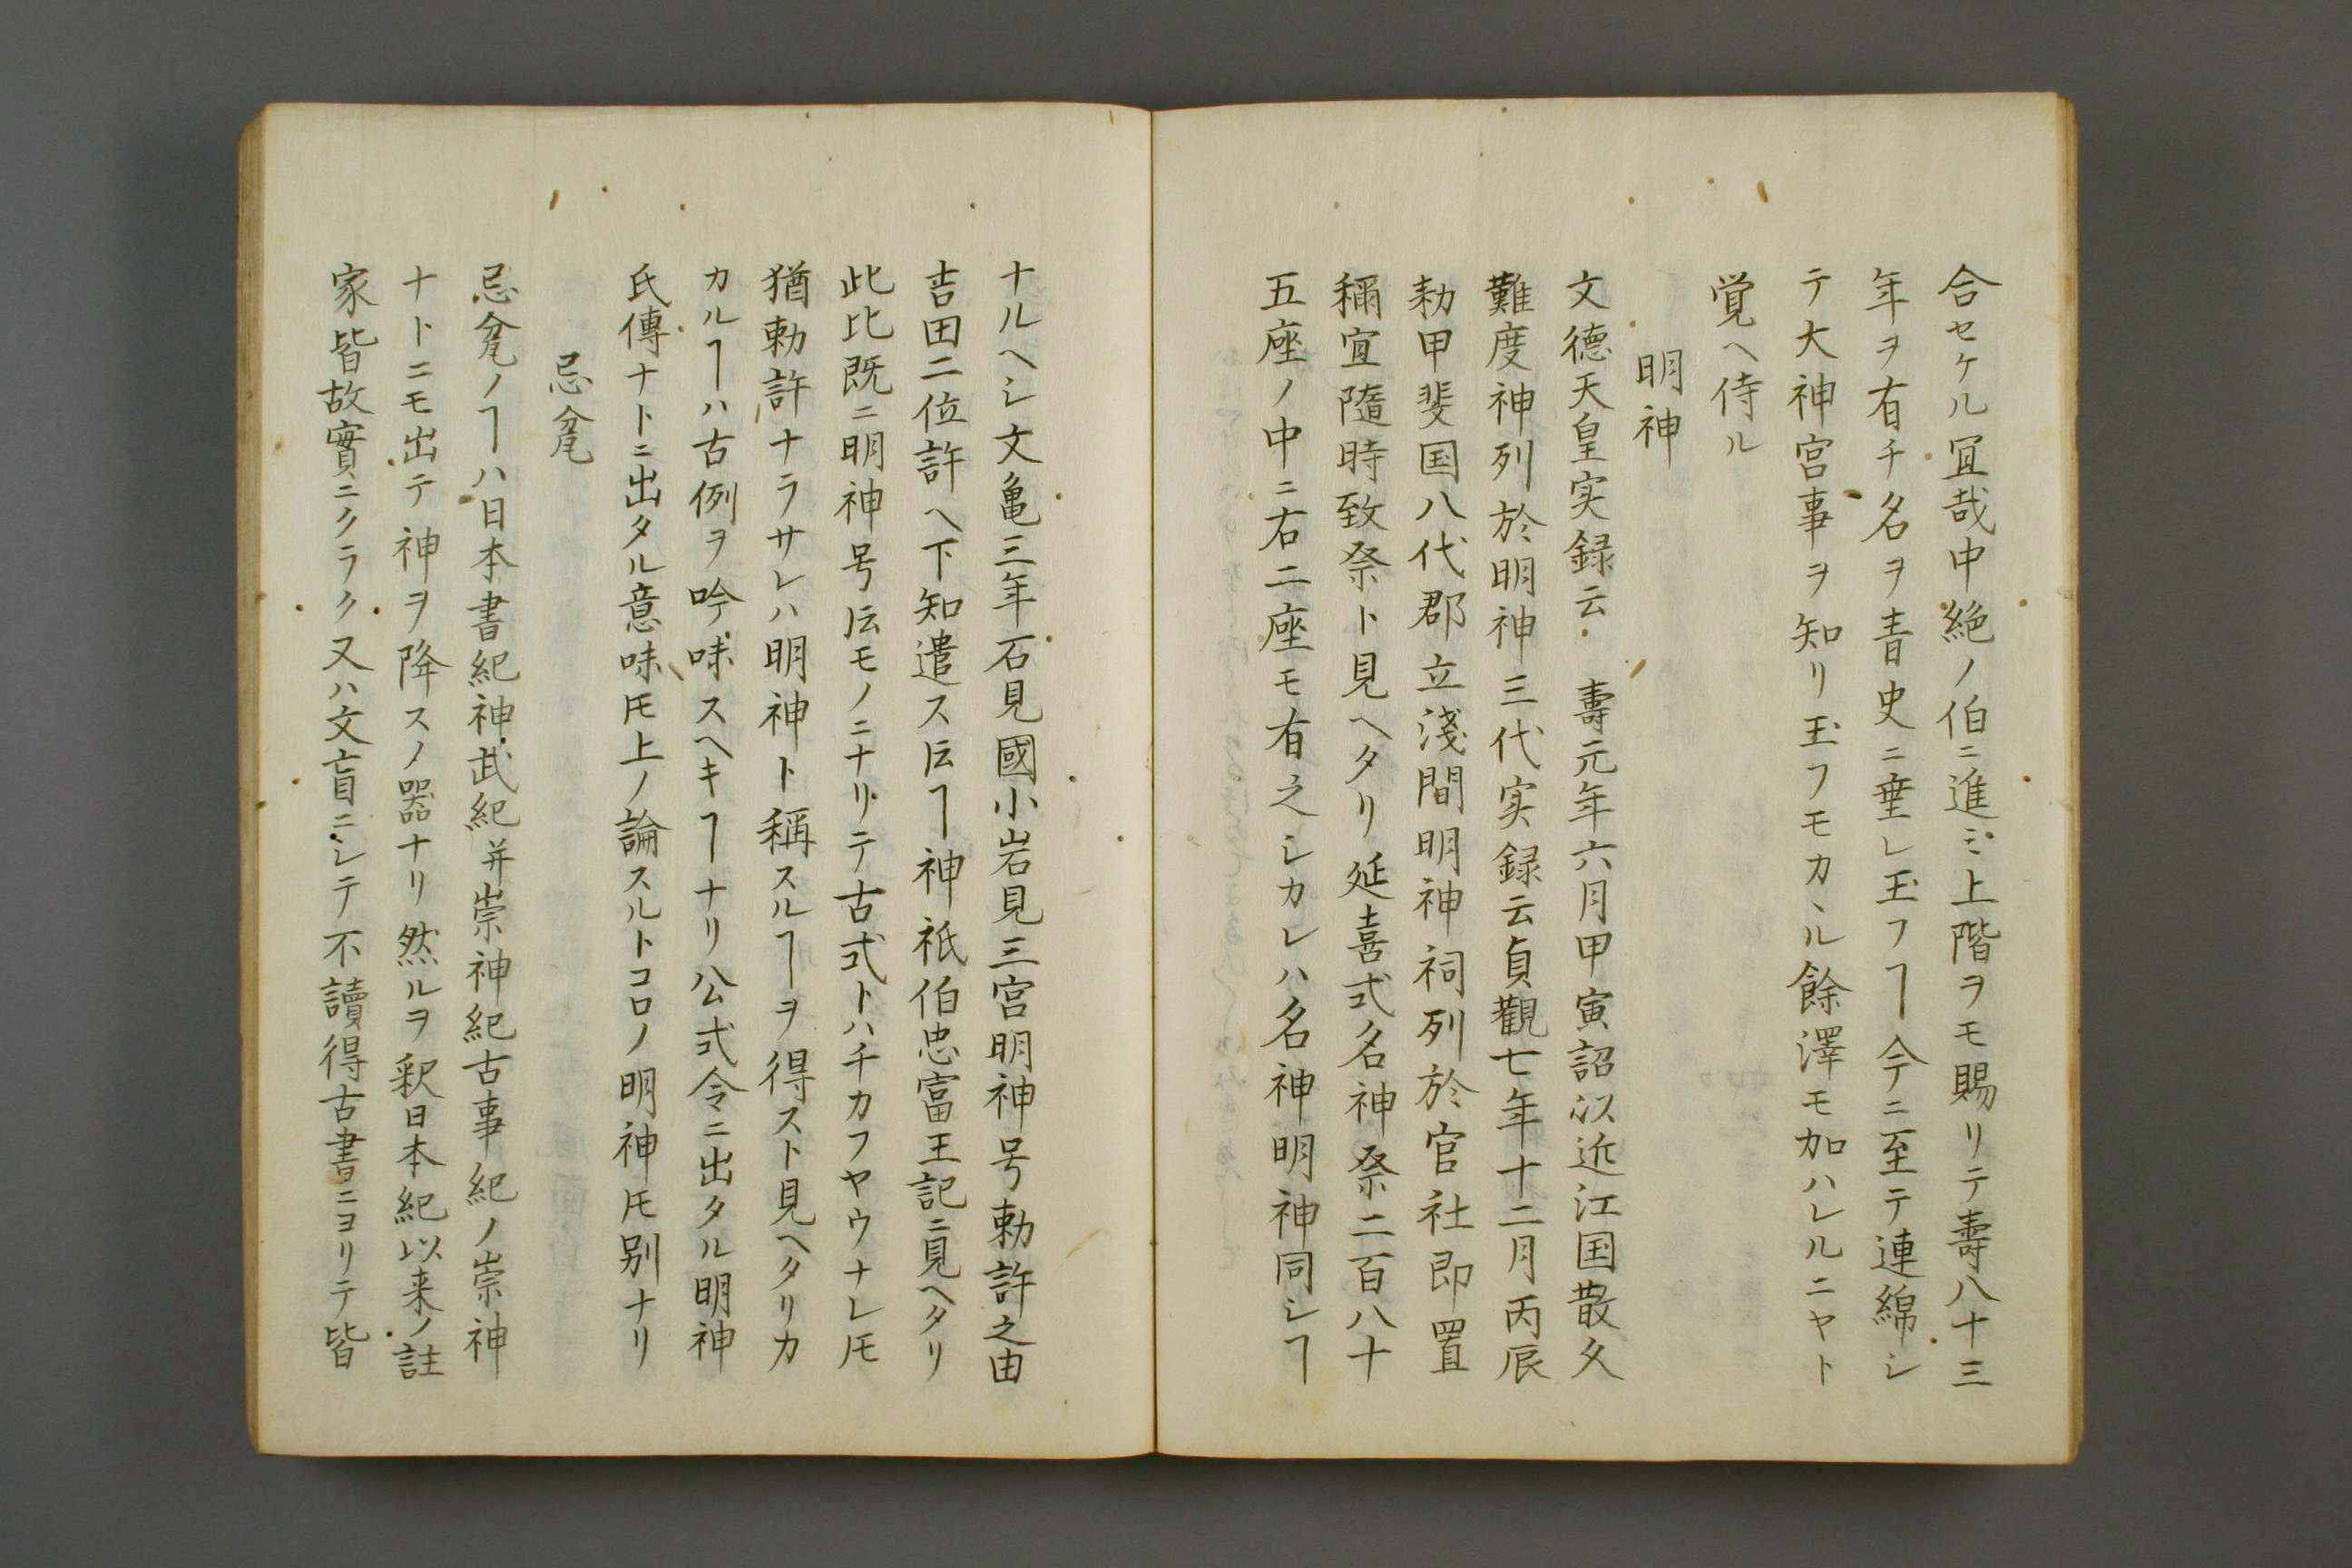 合セケル冝哉中絶ノ伯ニ進ミ上階ヲモ賜リテ壽八十三
年ヲ有チ名ヲ青史ニ垂レ玉フヿ今ニ至テ連綿シ
テ大神宮事ヲ知リ玉フモカヽル餘澤モ加ハレルニヤト
覚ヘ侍ル
明神
文德天皇実録云 壽元年六月甲寅詔以近江国散久
難度神列於明神三代実録云貞觀七年十二月丙辰
勅甲斐国八代郡立淺間明神祠列於官社即置
稱宜隨時致祭ト見ヘタリ延喜式名神祭二百八十
五座ノ中ニ右二座モ有之シカレハ名神明神同シヿ
ナルヘシ文亀三年石見國小岩見三宮明神号勅許之由
吉田二位許ヘ下知遣ス云ヿ神祇伯忠富王記ニ見ヘタリ
此比既ニ明神号云モノニナリテ古式トハチカフヤウナレ𪜈
猶勅許ナラサレハ明神ト稱スルヿヲ得スト見ヘタリカ
カルヿハ古例ヲ吟味スヘキヿナリ公式令ニ出タル明神
氏傳ナトニ出タル意味𪜈上ノ論スルトコロノ明神𪜈別ナリ
忌瓮
忌瓮ノヿハ日本書紀神武紀并崇神紀古事紀ノ崇神
ナトニモ出テ神ヲ降スノ器ナリ然ルヲ釈日本紀以来ノ註
家皆故實ニクラク又ハ文盲ニシテ不讀得古書ニヨリテ皆